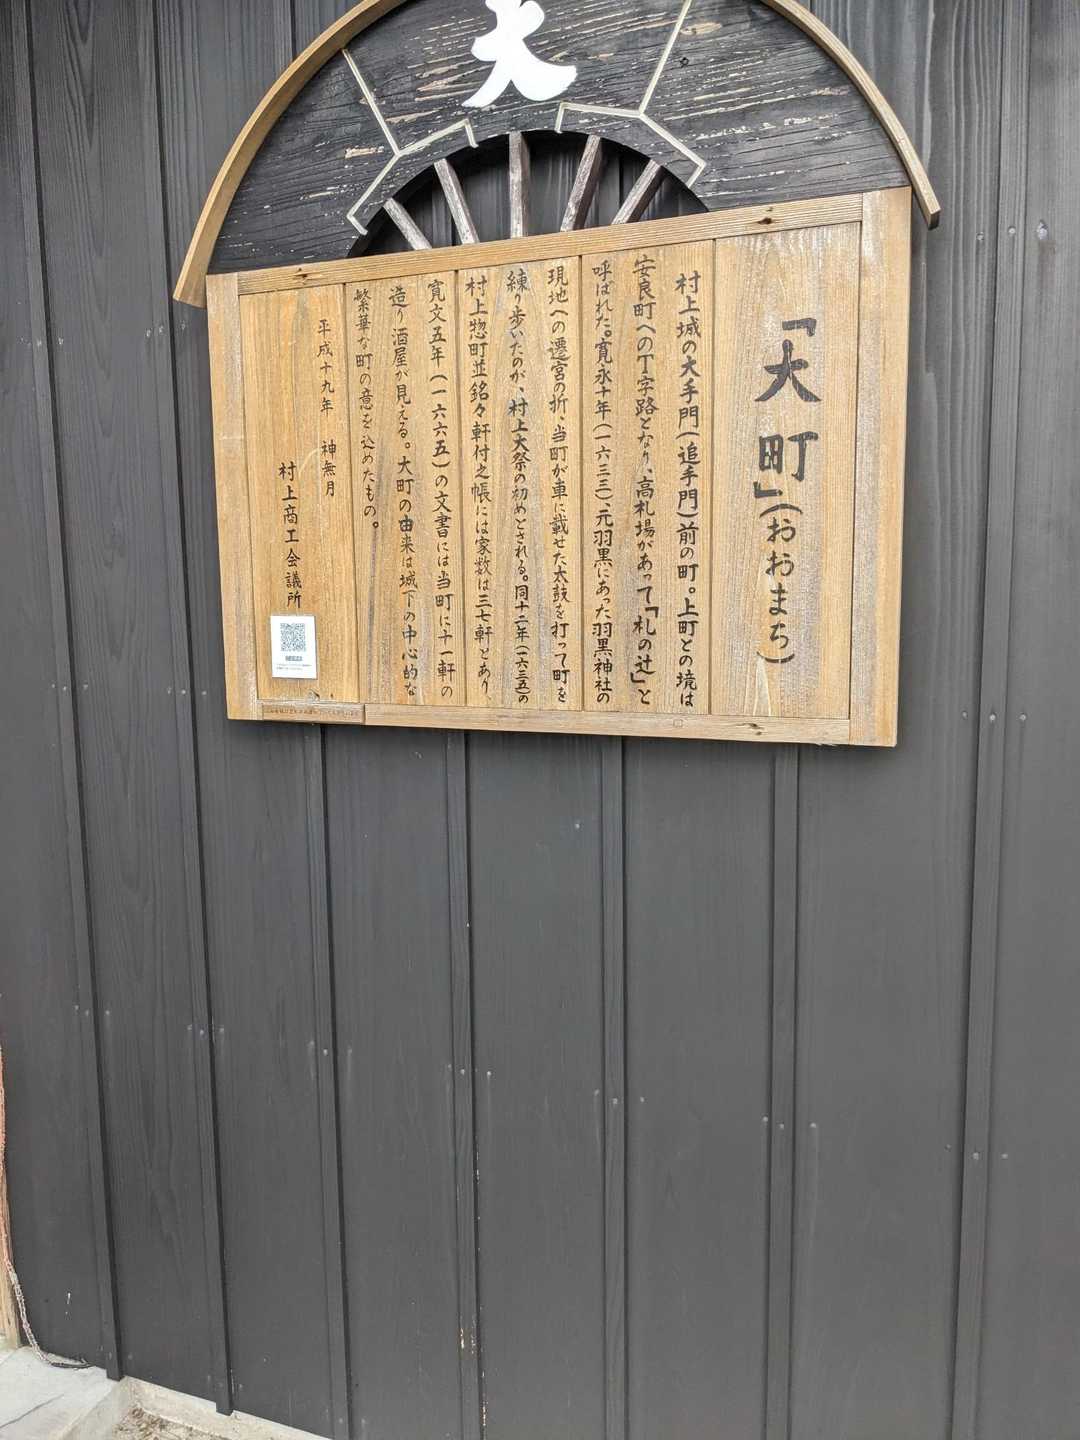 大
「大町」(おおまち)
村上城の大手門(追手門)前の町。上町との境は
安良町への丁字路となり、高札場があって「札の辻」と
呼ばれた。寛永十年(一六三三)、元羽黒にあった羽黒神社の
現地への遷宮の折、当町が車に載せた太鼓を打って町を
練り歩いたのが、村上大祭の初めとされる。同十二年(一六三五)の
村上惣町並銘々軒付之帳には家数は三七軒とあり、
寛文五年(一六六五)の文書には当町に十一軒の
造り酒屋が見える。大町の由来は城下の中心的な
繁華な町の意を込めたもの。
平成十九年 神無月
村上商工会議所